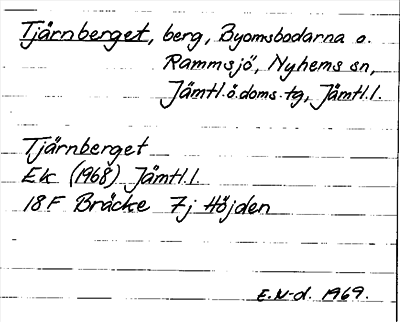 Tjärnberget, berg, Byomsbodarna o.
Rammsjö, Nyhems sn,
Jämtl. ö. doms. tg, Jämtl. l.
Tjärnberget
Ek (1968) Jämtl. l.
18 F Bräcke 7j Höjden
E. N-d. 1969.